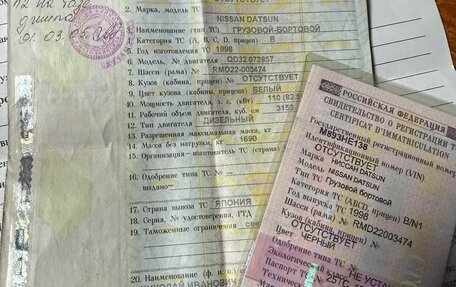 01.03.05
ОТСУТСТВУЕТ
2. Марка, модель ТС
NISSAN DATSUN
3. Наименование (тип ТС) ГРУЗОВОЙ-БОРТОВОЙ
4. Категория ТС (А, В, С, D, прицеп) B
5. Год изготовления ТС 1998
6. Модель, № двигателя QD32 072857
7. Шасси (рама) № RMD22-003474
8. Кузов (кабина, прицеп) № ОТСУТСТВУЕТ
9. Цвет кузова (кабины, прицепа) БЕЛЫЙ
10. Мощность двигателя, л. с. (кВт) 110 (82
11. Рабочий объем двигателя, куб. см 3153
12. Тип двигателя ДИЗЕЛЬНЫЙ
13. Разрешенная максимальная масса, кг
14. Масса без нагрузки, кг 1690
15. Организация — изготовитель ТС (страна)
16. Одобрение типа ТС №
выдано
17. Страна вывоза ТС ЯПОНИЯ
18. Серия, № удостоверения, ГТД
19. Таможенные ограничения
20. Наименование (ф. и. о.)
НИКОЛАЙ ИВАНОВИЧ
РОССИЙСКАЯ ФЕДЕРАЦИЯ
СВИДЕТЕЛЬСТВО О РЕГИСТРАЦИИ Т
CERTIFICAT D'IMMATRICULATION
Государственный регистрационный
Идентификационный номер (VIN)
ОТСУТСТВУЕТ
Марка NISSAN DATSUN
Модель NISSAN DATSUN
Тип ТС Грузовой бортовой
Категория ТС (ABCD, прицеп) B/N1
Год выпуска ТС 1998
Шасси (рама) № RMD22003474
Кузов (кабина, прицеп) №
ОТСУТСТВУЕТ
Цвет ЧЕРНЫЙ
Одобрение типа ТС
НЕ УСТА
Паспорт ТС 25ТС